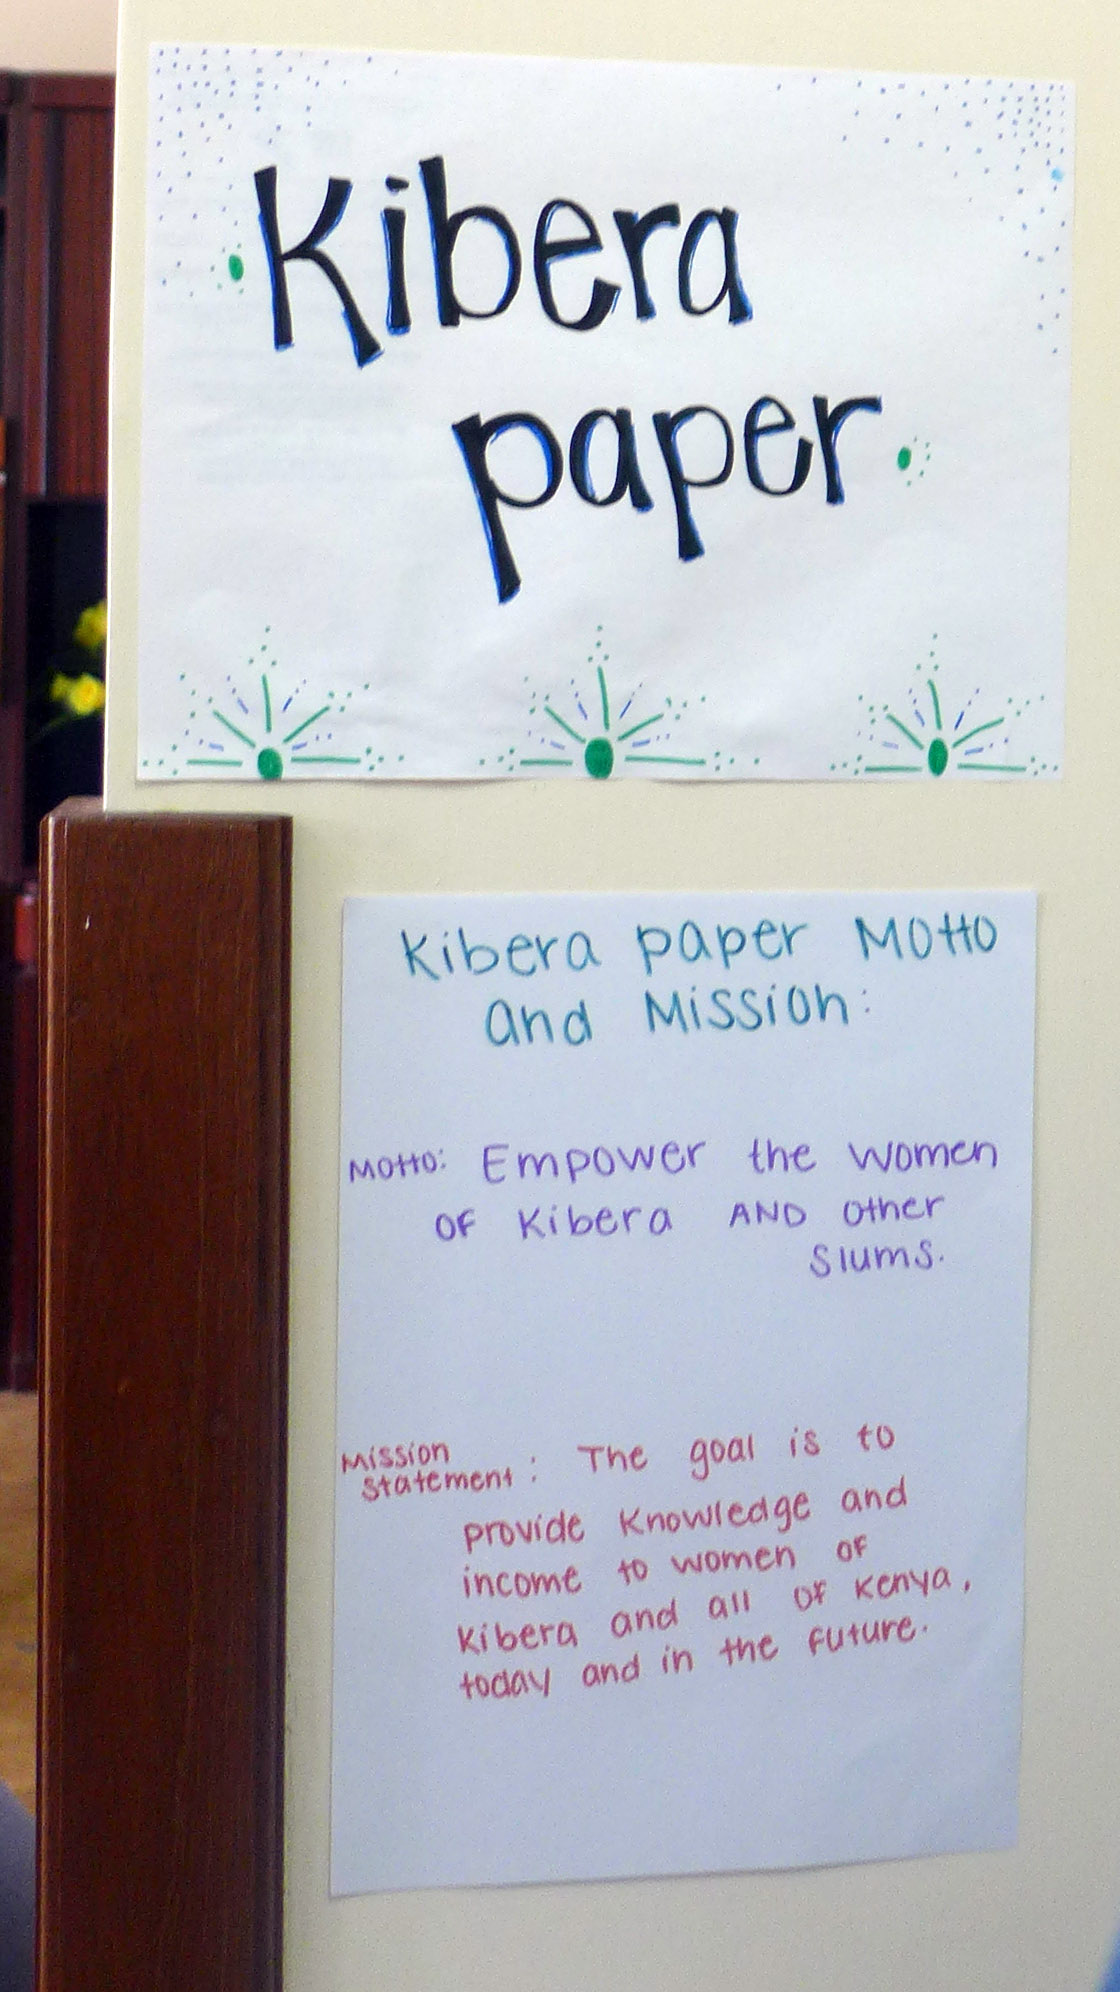 Kibera
paper
Kibera paper Motto
and Mission:
Motto: Empower the women
of Kibera AND other
slums.
Mission
statement: The goal is to
provide knowledge and
income to women of
Kibera and all of Kenya,
today and in the future.